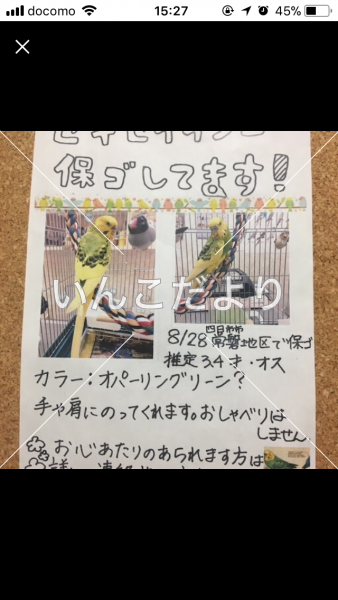 docomo 15:27 45%
セキセイインコ
保ゴしてます!
いんこだより
四日市市
8/28 常磐地区で保ゴ
推定3,4才・オス
カラー:オパーリングリーン?
手や肩にのってくれます。おしゃべりは
しません
お心あたりのあられます方は